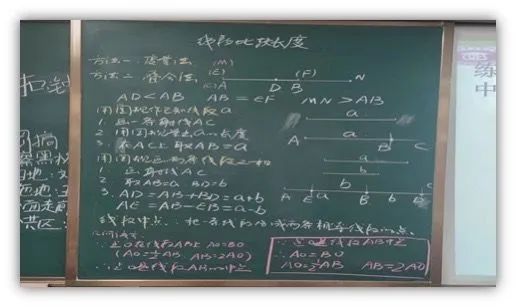 线段比较长度
方法一: 度量法 (M)
方法二: 叠合法 (E) (F)
(C)A D B N
AD<AB AB=EF MN>AB
用圆规作已知线段a
1 画一条射线AC
2 用圆规量出a的长度
3. 在AC上取AB=a
a
A a B C
用圆规画两条线段之和
1. 画射线AC
2 取AB=a BD=b
3. AD=AB+BD=a+b
AE=AB-EB=a-b
a
b
b b
A E B D C
线段中点: 把一条线段分成两条相等线段的点
几何语言
∵点O在线段AB上 AO=BO
(AO=½AB AB=2AO)
∴点O是线段AB的中点
∵点O是线段AB中点
∴AO=BO
AO=½AB AB=2AO
练
中